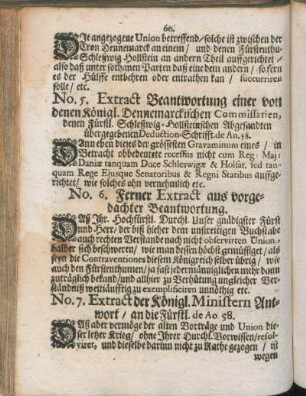 60.
DIe angezogene Union betreffend / solche ist zwischen der
Cron Dennemarck an einem / und denen Fürstenthu-
Schleßwig-Hollstein an andern Theil auffgerichtet /
also daß unter sothanen Parten daß eine dem andern / so fern
es der Hülffe entbehren oder entrathen kan / succurriren
solle / etc.
No. 5. Extract Beantwortung einer von
denen Königl. Dennemarckischen Commissarien,
denen Fürstl. Schleßwig-Hollsteinischen Abgesandten
übergegebenen Deduction-Schrifft. de An. 58.
DAnn eben dieses der grössesten Gravaminum eines / in
Betracht obbedeutete recessus nicht cum Reg: Maj:
Daniæ tanquam Duce Schleswigæ & Holsat, sed tan-
quam Rege Ejusque Senatoribus & Regni Statibus auffge-
richtet / wie solches ohn vernehmlich etc.
No. 6. Ferner Extract aus vorge-
dachter Beantwortung.
DAs Ihr. Hochfürstl. Durchl. Unser gnädigster Fürst
und Herr / der biß hieher dem unstreitigen Buchstabe
auch rechten Verstande nach nicht observirten Union
halber sich beschweren / wie man dessen höchst genüssiget / als
seyn die Contraventiones diesem Königreich selber übrig / wie
auch den Fürstenthumen / ja fast jedermänniglichen mehr dann
zuträglich bekand / und allhier zu Verhütung ungleicher Ver-
ständniß weitläufftig zu exemplificiren unnöthig etc.
No. 7. Extract der Königl. Ministern Ant-
wort / an die Fürstl. de Ao 58.
DAß aber vermöge der alten Vorträge und Union die-
ser letzer Krieg / ohne Ihrer Durchl. Vorwissen / resol-
viret, und dieselbe darinn nicht zu Rathe gezogen / ist
wegen